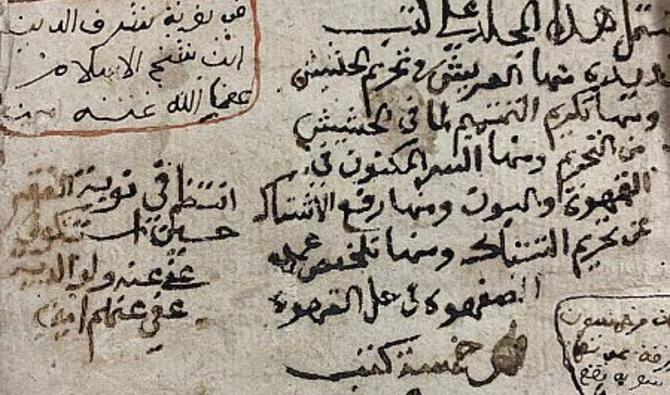 يشتمل هذا المجلد على كتب
عديدة منها العريش في تحريم الحشيش
ومنها تكريم التتميم لما في الحشيش
من التحريم ومنها السر المكنون في
القهوة والبون ومنها رفع الاشتباك
عن تحريم التنباك ومنها تلخيص
الصفهوة في حل القهوة
خمسة كتب
من نوبة شرف الدين
ابن شيخ الاسلام
عفا الله عنه
انتظم في نوبة الفقير
حسين
عفي عنه ولوالديه
عفي عنهم امين